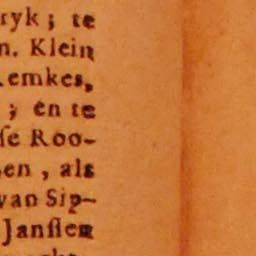 ryk; te
n. Klein
emkes,
; en te
ſe Roo-
en, als
van Sip-
Janſſen